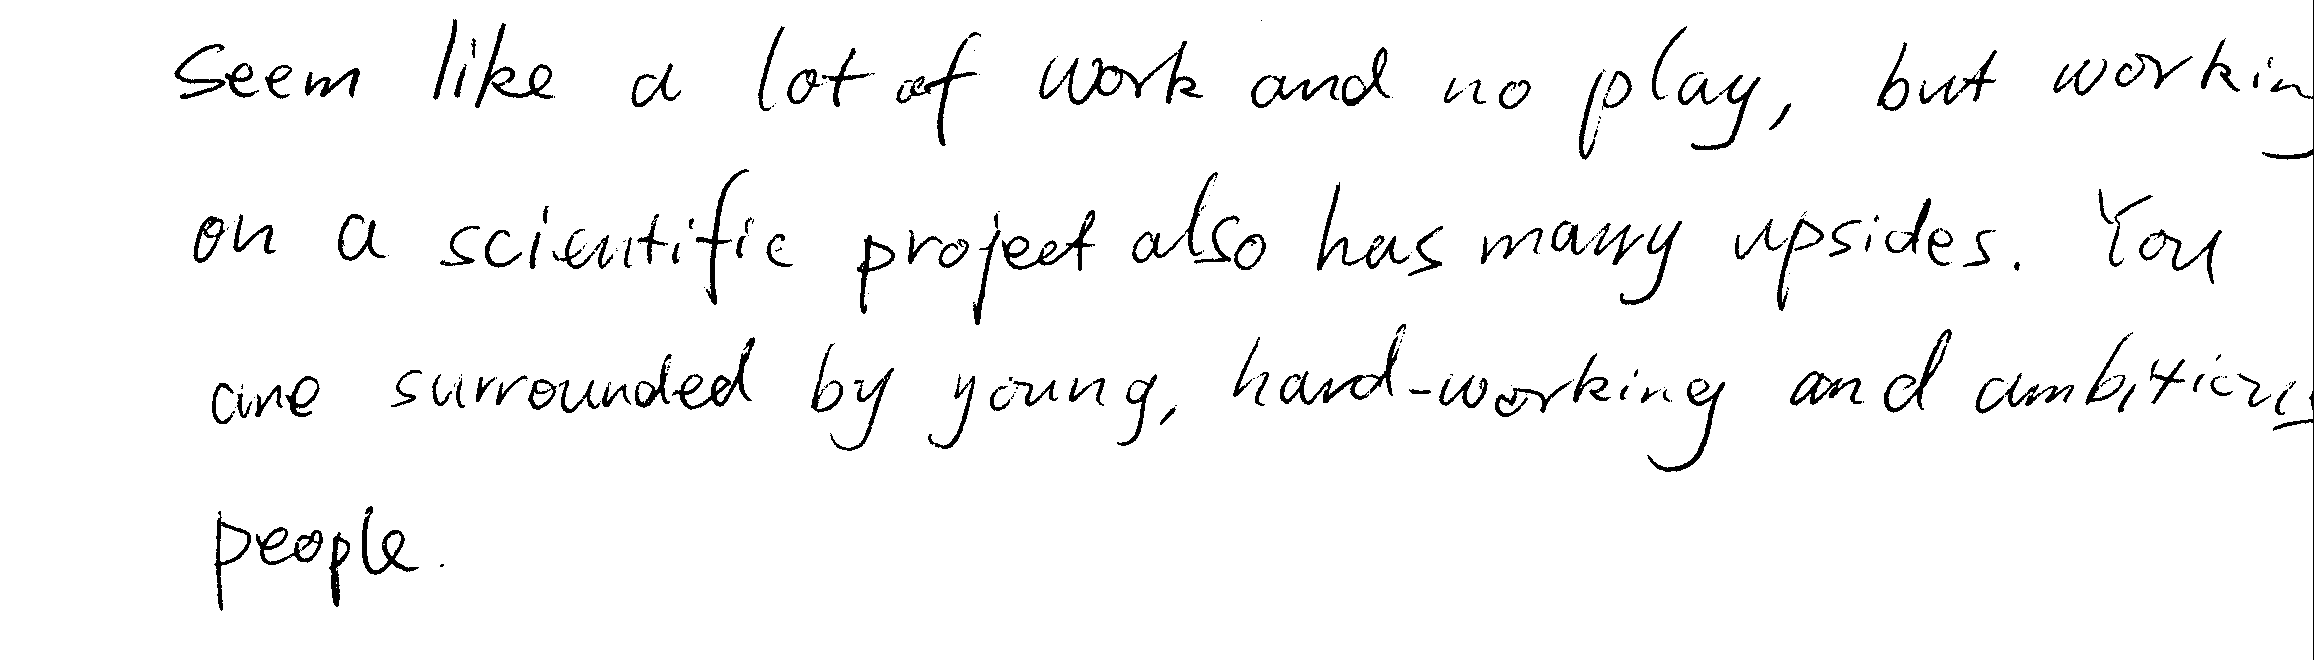 seem like a lot of work and no play, but working
on a scientific project also has many upsides. You
are surrounded by young, hard-working and ambitious
people.